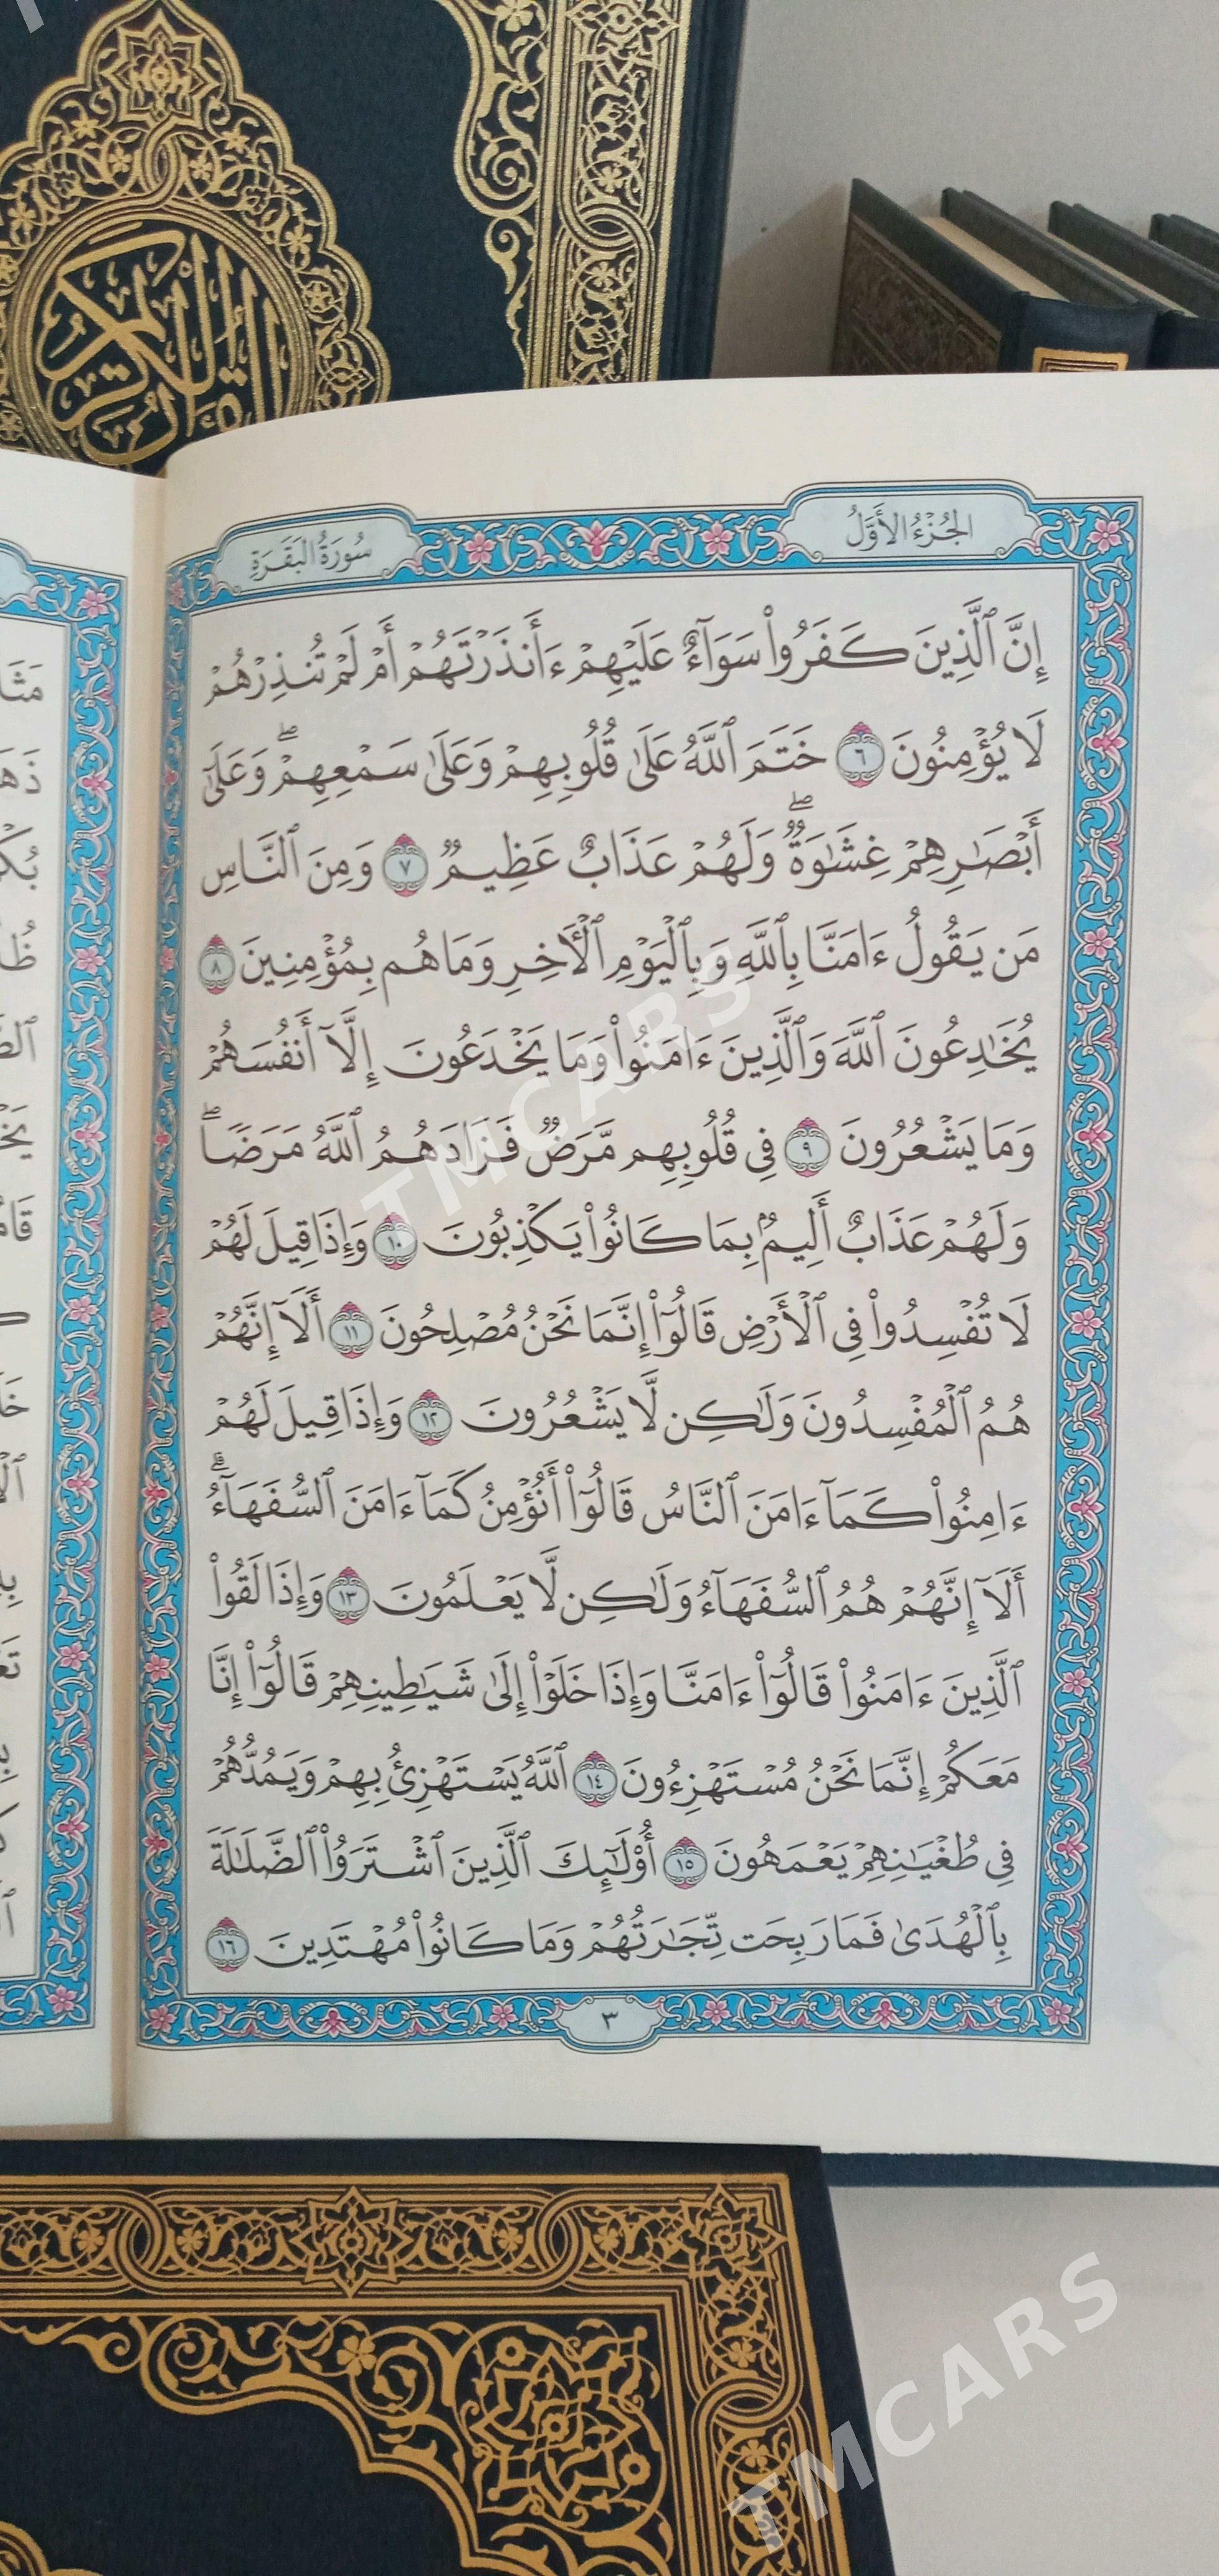 القرآن الكريم
الجزء الأول
سورة البقرة
إِنَّ ٱلَّذِينَ كَفَرُوا۟ سَوَآءٌ عَلَيْهِمْ ءَأَنذَرْتَهُمْ أَمْ لَمْ تُنذِرْهُمْ
لَا يُؤْمِنُونَ ٦ خَتَمَ ٱللَّهُ عَلَىٰ قُلُوبِهِمْ وَعَلَىٰ سَمْعِهِمْ ۖ وَعَلَىٰٓ
أَبْصَـٰرِهِمْ غِشَـٰوَةٌ ۖ وَلَهُمْ عَذَابٌ عَظِيمٌ ٧ وَمِنَ ٱلنَّاسِ
مَن يَقُولُ ءَامَنَّا بِٱللَّهِ وَبِٱلْيَوْمِ ٱلْـَٔاخِرِ وَمَا هُم بِمُؤْمِنِينَ ٨
يُخَـٰدِعُونَ ٱللَّهَ وَٱلَّذِينَ ءَامَنُوا۟ وَمَا يَخْدَعُونَ إِلَّآ أَنفُسَهُمْ
وَمَا يَشْعُرُونَ ٩ فِى قُلُوبِهِم مَّرَضٌ فَزَادَهُمُ ٱللَّهُ مَرَضًا ۖ
وَلَهُمْ عَذَابٌ أَلِيمٌۢ بِمَا كَانُوا۟ يَكْذِبُونَ ١٠ وَإِذَا قِيلَ لَهُمْ
لَا تُفْسِدُوا۟ فِى ٱلْأَرْضِ قَالُوٓا۟ إِنَّمَا نَحْنُ مُصْلِحُونَ ١١ أَلَآ إِنَّهُمْ
هُمُ ٱلْمُفْسِدُونَ وَلَـٰكِن لَّا يَشْعُرُونَ ١٢ وَإِذَا قِيلَ لَهُمْ
ءَامِنُوا۟ كَمَآ ءَامَنَ ٱلنَّاسُ قَالُوٓا۟ أَنُؤْمِنُ كَمَآ ءَامَنَ ٱلسُّفَهَآءُ ۗ
أَلَآ إِنَّهُمْ هُمُ ٱلسُّفَهَآءُ وَلَـٰكِن لَّا يَعْلَمُونَ ١٣ وَإِذَا لَقُوا۟
ٱلَّذِينَ ءَامَنُوا۟ قَالُوٓا۟ ءَامَنَّا وَإِذَا خَلَوْا۟ إِلَىٰ شَيَـٰطِينِهِمْ قَالُوٓا۟ إِنَّا
مَعَكُمْ إِنَّمَا نَحْنُ مُسْتَهْزِءُونَ ١٤ ٱللَّهُ يَسْتَهْزِئُ بِهِمْ وَيَمُدُّهُمْ
فِى طُغْيَـٰنِهِمْ يَعْمَهُونَ ١٥ أُو۟لَـٰٓئِكَ ٱلَّذِينَ ٱشْتَرَوُا۟ ٱلضَّلَـٰلَةَ
بِٱلْهُدَىٰ فَمَا رَبِحَت تِّجَـٰرَتُهُمْ وَمَا كَانُوا۟ مُهْتَدِينَ ١٦
٣
TMCARS
TMCARS